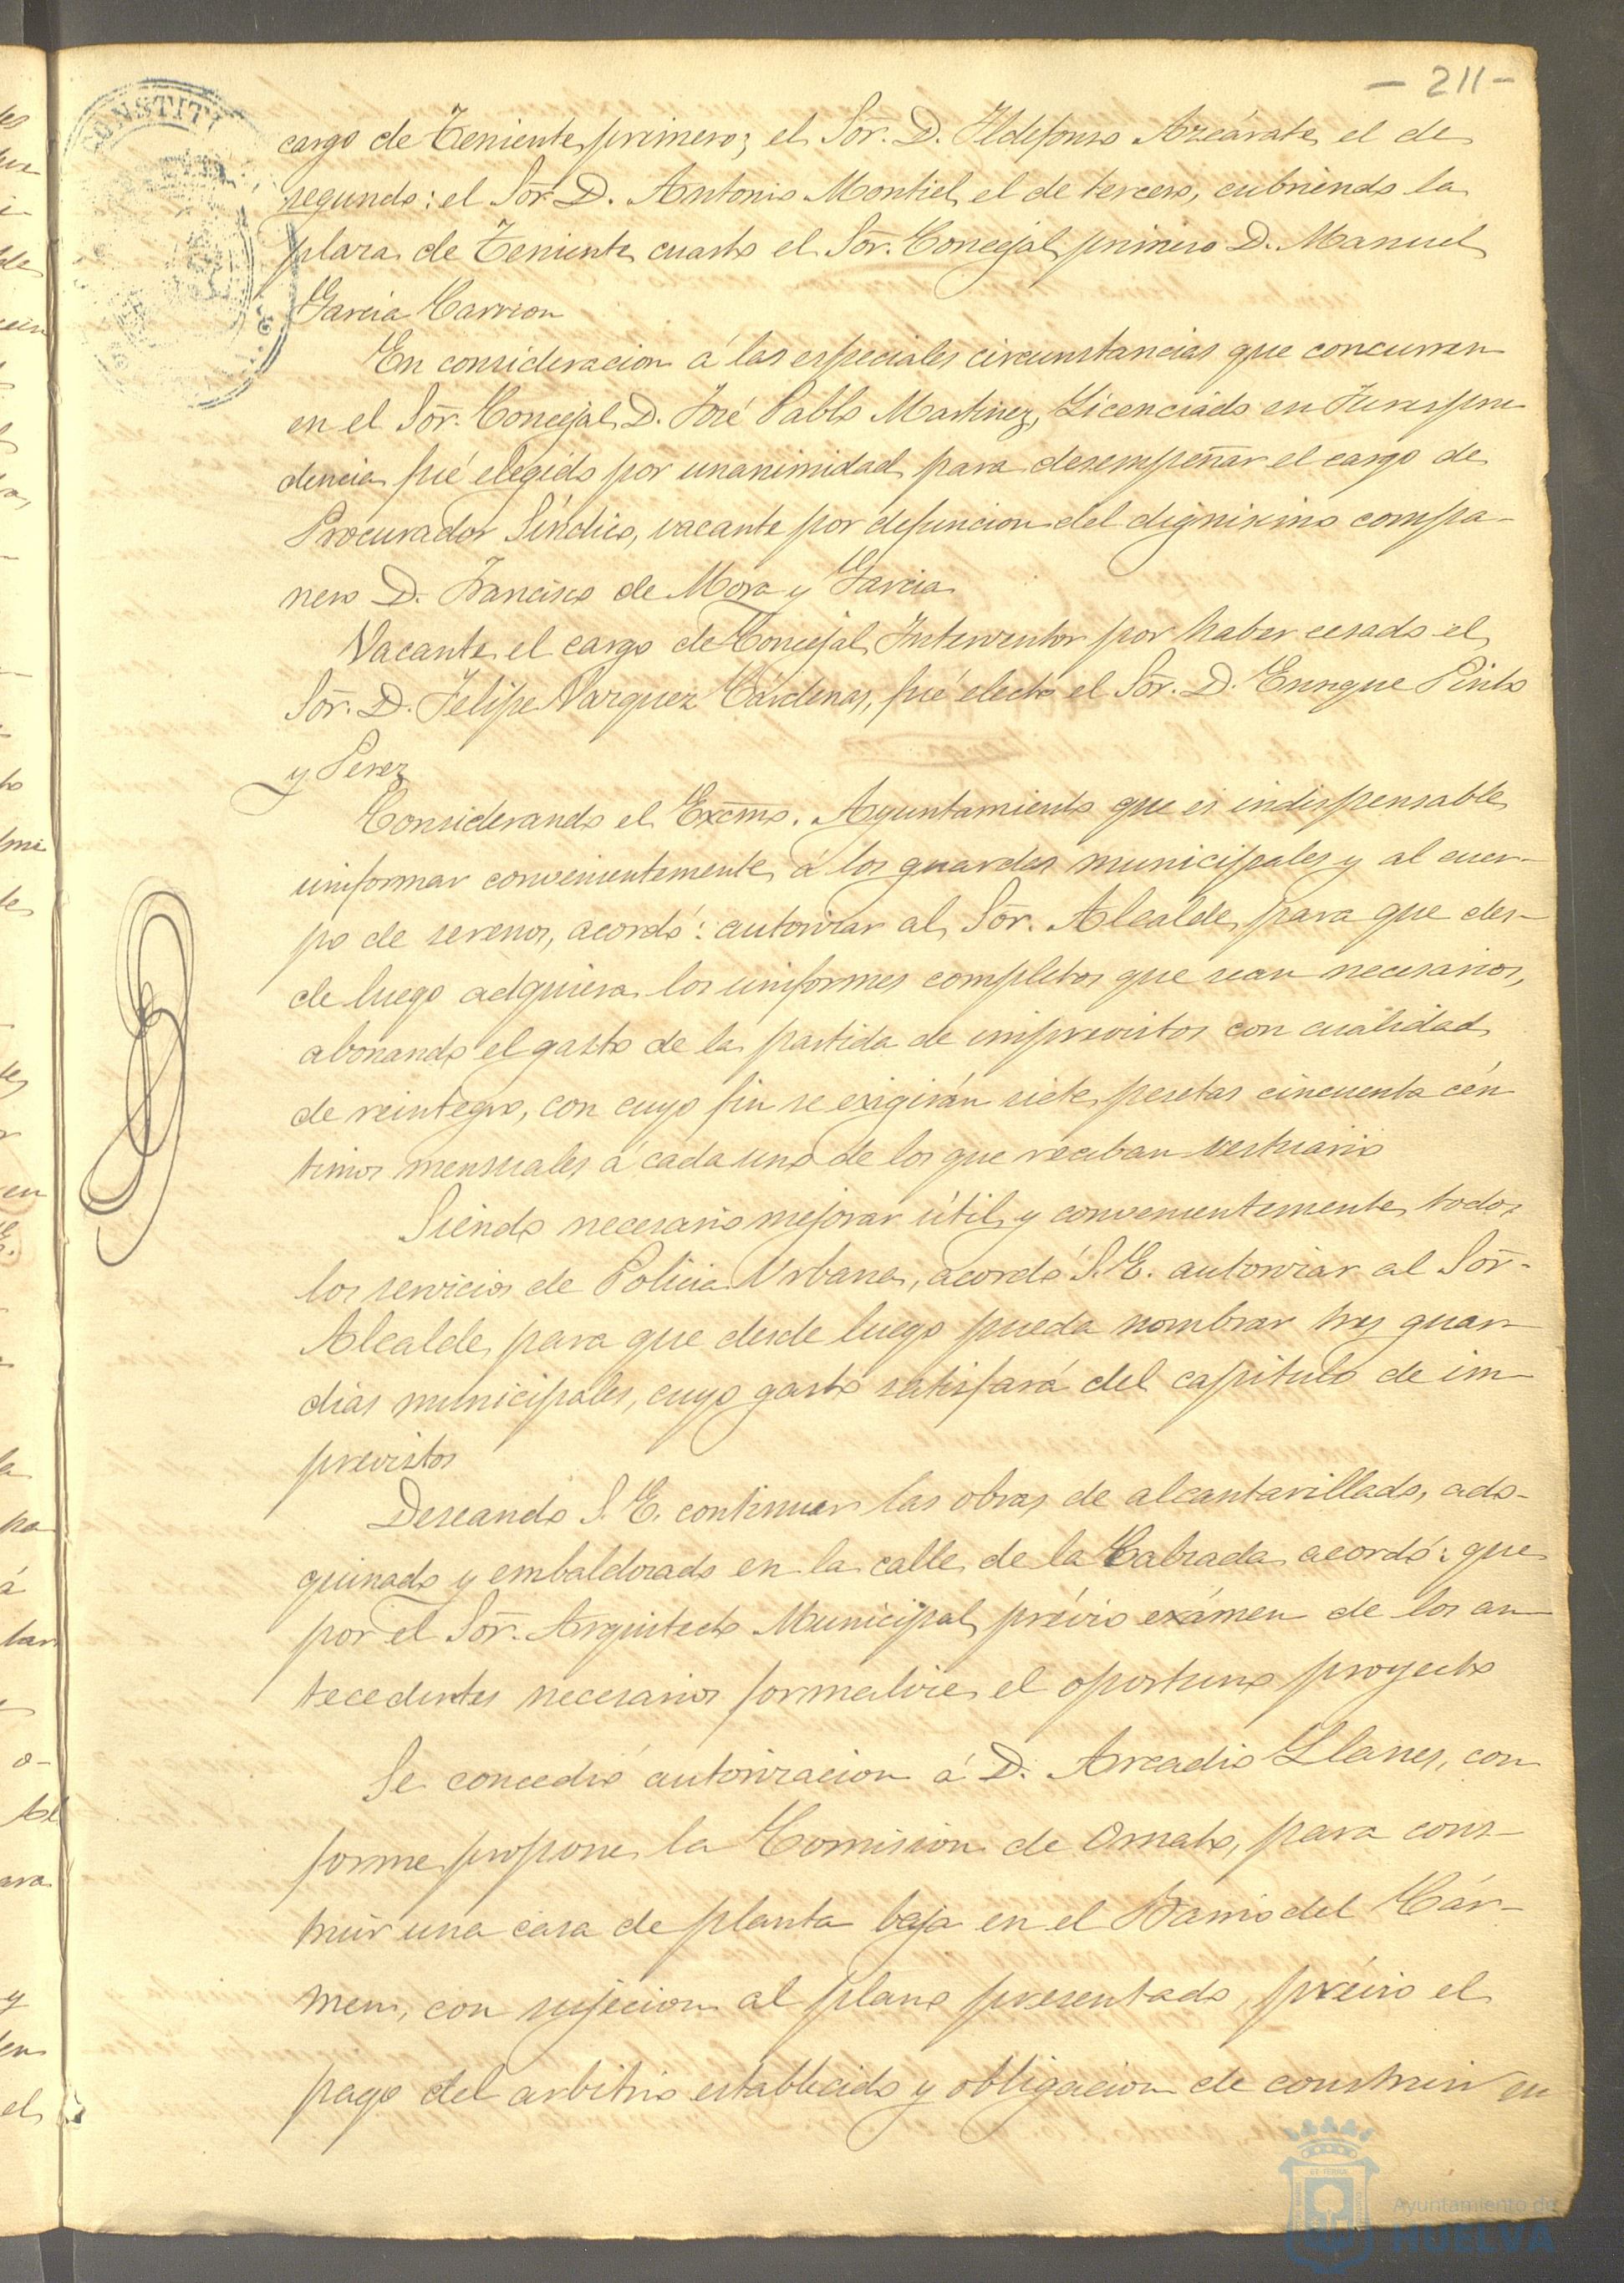 - 211 -
CONSTITU
cargo de Teniente primero; el Sor. D. Ildefonso Azcárate, el de
segundo: el Sor. D. Antonio Montiel, el de tercero, cubriendo la
plaza de Teniente cuarto el Sor. Concejal primero D. Manuel
García Carrion
En consideracion á las especiales circunstancias que concurren
en el Sor. Concejal D. José Pablo Martinez, Licenciado en Jurispru
dencia fué elegido por unanimidad para desempeñar el cargo de
Procurador Síndico, vacante por defuncion del dignisimo compa-
nero D. Francisco de Mora y Garcia
Vacante el cargo de Concejal Interventor por haber cesado el
Sor. D. Felipe Vazquez Cárdenas, fué electo el Sor. D. Enrique Pinto
y Perez
Considerando el Excmo. Ayuntamiento que es indispensable
uniformar convenientemente á los guardas municipales y al cuer-
po de serenos, acordó: autorizar al Sor. Alcalde para que des-
de luego adquiera los uniformes completos que sean necesarios,
abonando el gasto de la partida de imprevistos con cualidad
de reintegro, con cuyo fin se exigirán siete pesetas cincuenta cén
timos mensuales á cada uno de los que reciban vestuario
Siendo necesario mejorar útil y convenientemente todos
los servicios de Policia Urbana, acordó S. E. autorizar al Sor.
Alcalde para que desde luego pueda nombrar tres guar
dias municipales, cuyo gasto satisfará del capitulo de im-
previstos
Deseando S. E. continuar las obras de alcantarillado, ado-
quinado y embaldosado en la calle de la Calzada acordó: que
por el Sor. Arquitecto Municipal, prévio exámen de los an-
tecedentes necesarios formalice el oportuno proyecto
Se concedió autorizacion á D. Arcadio Llanes, con
forme propone la Comision de Ornato, para cons-
truir una casa de planta baja en el Barrio del Cár-
men, con sujecion al plano presentado, prévio el
pago del arbitrio establecido y obligacion de construir en
Ayuntamiento de
HUELVA